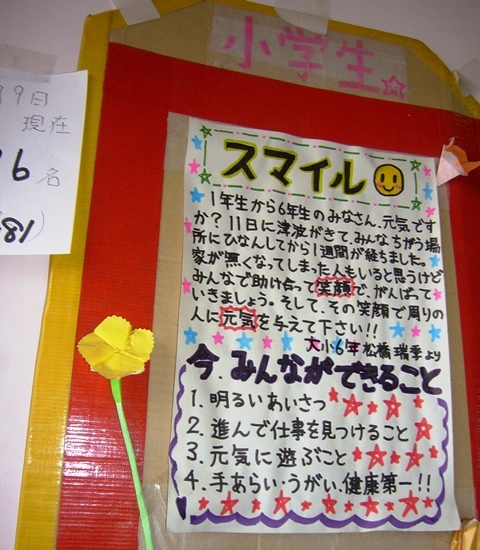 小学生☆
9日
現在
6名
スマイル
1年生から6年生のみなさん、元気です
か？11日に津波がきて、みんなちがう場
所にひなんしてから1週間が経ちました。
家が無くなってしまった人もいると思うけど
みんなで助け合って笑顔で、がんばって
いきましょう。そして、その笑顔で周りの
人に元気を与えて下さい!!
大小6年 松橋 瑞季より
今みんなができること
1. 明るいあいさつ
2. 進んで仕事を見つけること
3. 元気に遊ぶこと
4. 手あらい・うがい、健康第一!!